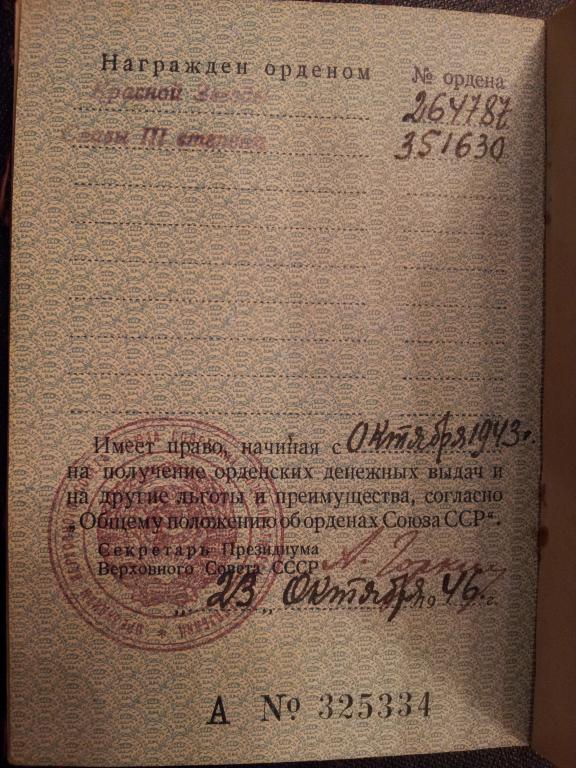 Награжден орденом № ордена
Красной Звезды 264787
Славы III степени 351630
Имеет право, начиная с Октября 1943 г.
на получение орденских денежных выдач и
на другие льготы и преимущества, согласно
„Общему положению об орденах Союза ССР“.
Секретарь Президиума
Верховного Совета СССР А. Горкин
„ 23 „ Октября 19 46 г.
А № 325334